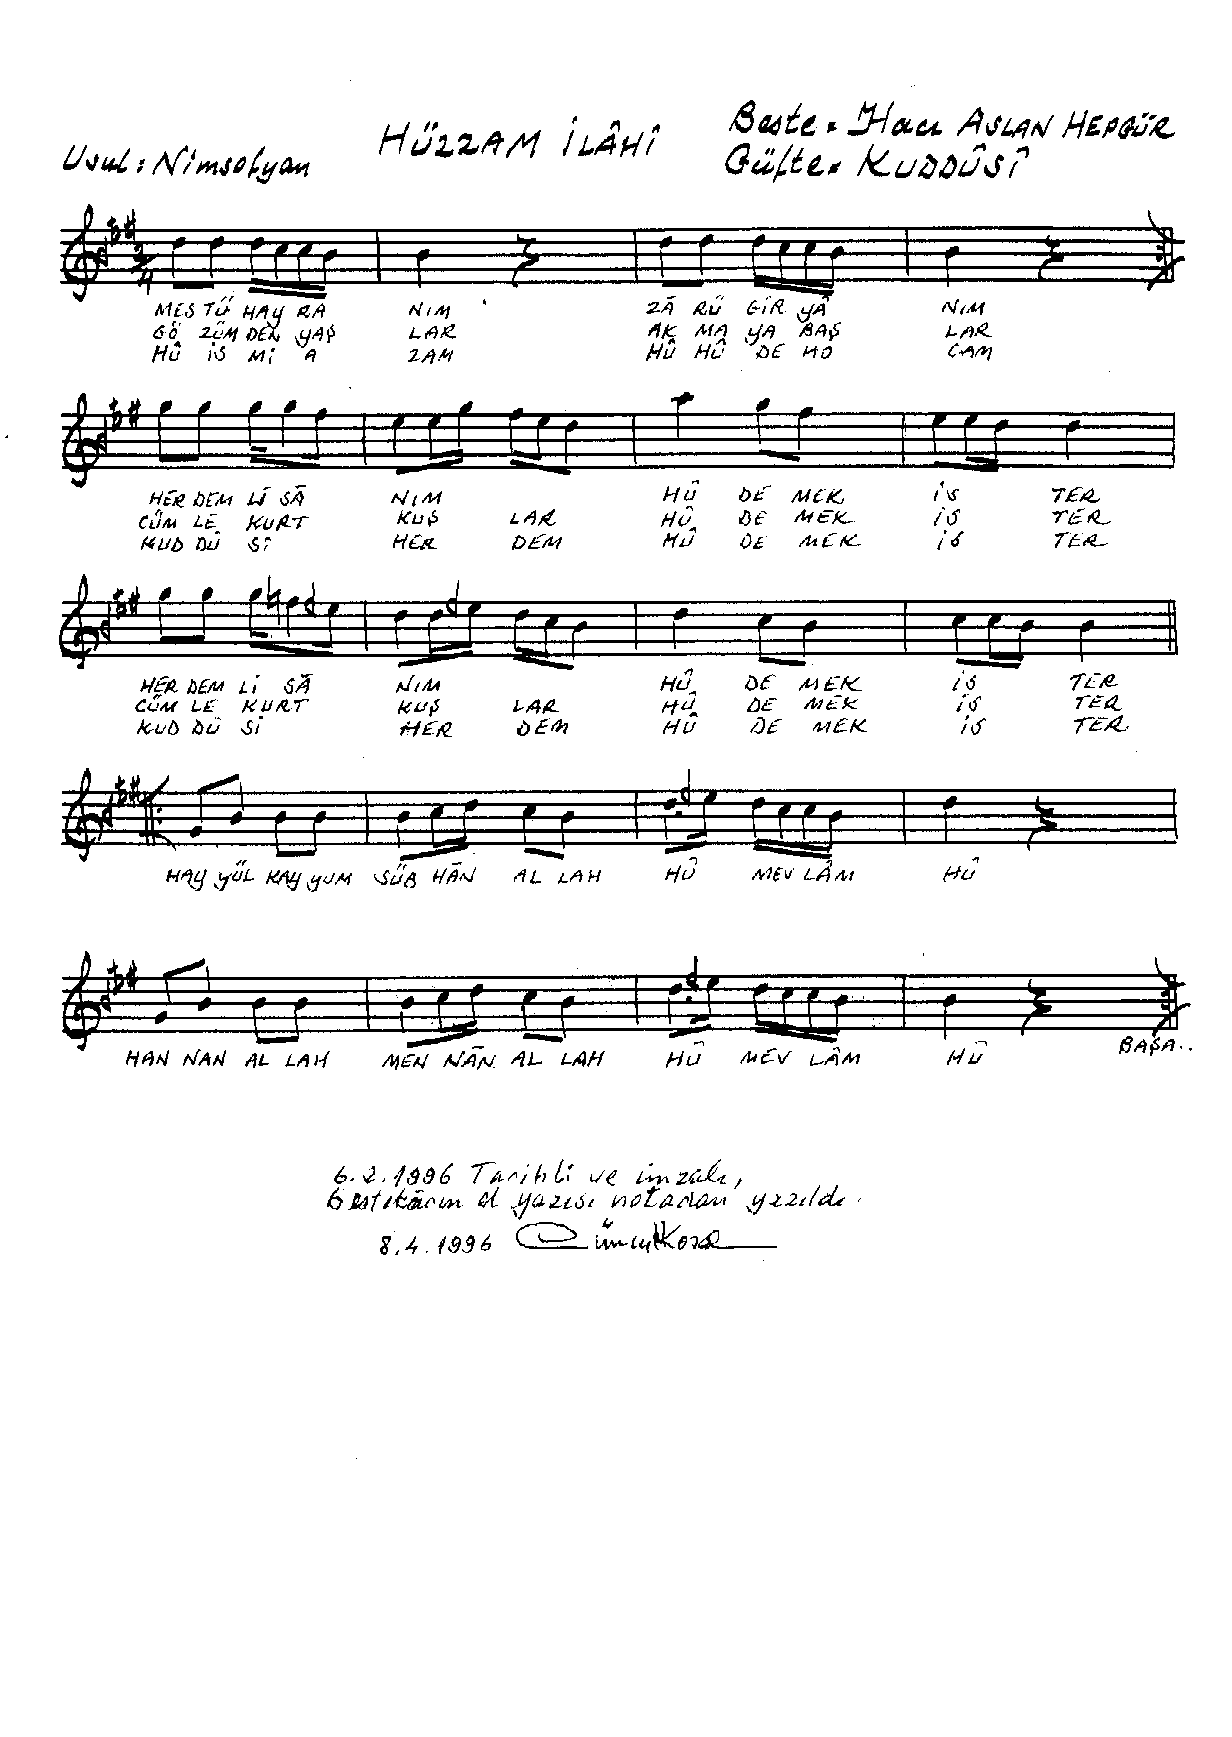 Usul: Nimsofyan
HÜZZAM İLÂHÎ
Beste: Hacı ASLAN HEPGÜR
Güfte: KUDDÛSÎ
2/4
MES TÜ HAY RA NIM ZÂ RÜ GİR YÂ NIM
GÖ ZÜM DEN YAŞ LAR AK MA YA BAŞ LAR
HÛ İS Mİ A ZAM HÛ HÛ DE HO CAM
HER DEM Lİ SÂ NIM HÛ DE MEK İS TER
CÜM LE KURT KUŞ LAR HÛ DE MEK İS TER
KUD DÛ Sİ HER DEM HÛ DE MEK İS TER
HER DEM Lİ SÂ NIM HÛ DE MEK İS TER
CÜM LE KURT KUŞ LAR HÛ DE MEK İS TER
KUD DÛ Sİ HER DEM HÛ DE MEK İS TER
HAY YÜL KAY YUM SÜB HÂN AL LAH HÛ MEV LÂM HÛ
HAN NAN AL LAH MEN NÂN AL LAH HÛ MEV LÂM HÛ BAŞA..
6.2.1996 Tarihli ve imzalı,
bestekârın el yazısı notadan yazıldı.
8.4.1996